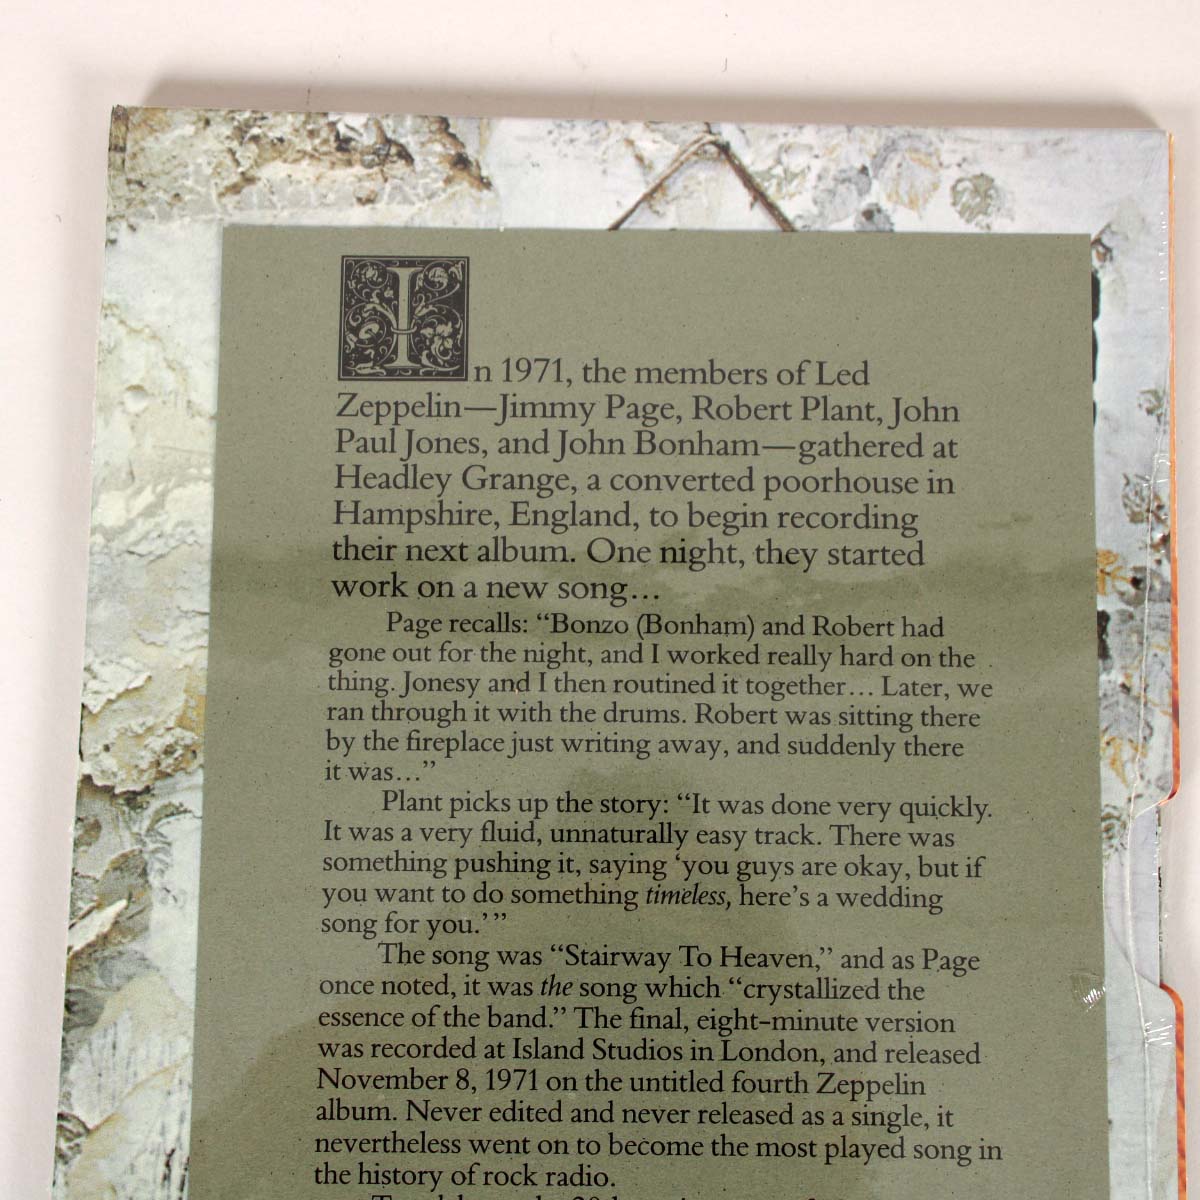 In 1971, the members of Led
Zeppelin—Jimmy Page, Robert Plant, John
Paul Jones, and John Bonham—gathered at
Headley Grange, a converted poorhouse in
Hampshire, England, to begin recording
their next album. One night, they started
work on a new song...
Page recalls: “Bonzo (Bonham) and Robert had
gone out for the night, and I worked really hard on the
thing. Jonesy and I then routined it together... Later, we
ran through it with the drums. Robert was sitting there
by the fireplace just writing away, and suddenly there
it was...”
Plant picks up the story: “It was done very quickly.
It was a very fluid, unnaturally easy track. There was
something pushing it, saying ‘you guys are okay, but if
you want to do something timeless, here’s a wedding
song for you.’”
The song was “Stairway To Heaven,” and as Page
once noted, it was the song which “crystallized the
essence of the band.” The final, eight-minute version
was recorded at Island Studios in London, and released
November 8, 1971 on the untitled fourth Zeppelin
album. Never edited and never released as a single, it
nevertheless went on to become the most played song in
the history of rock radio.